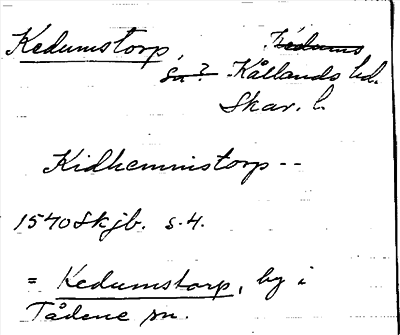 Kedumstorp, Kedums
sn? Kållands hd.
Skar. l.
Kidhemmistorp --
1540 Skjb. s. 4.
= Kedumstorp, by i
Tådene sn.